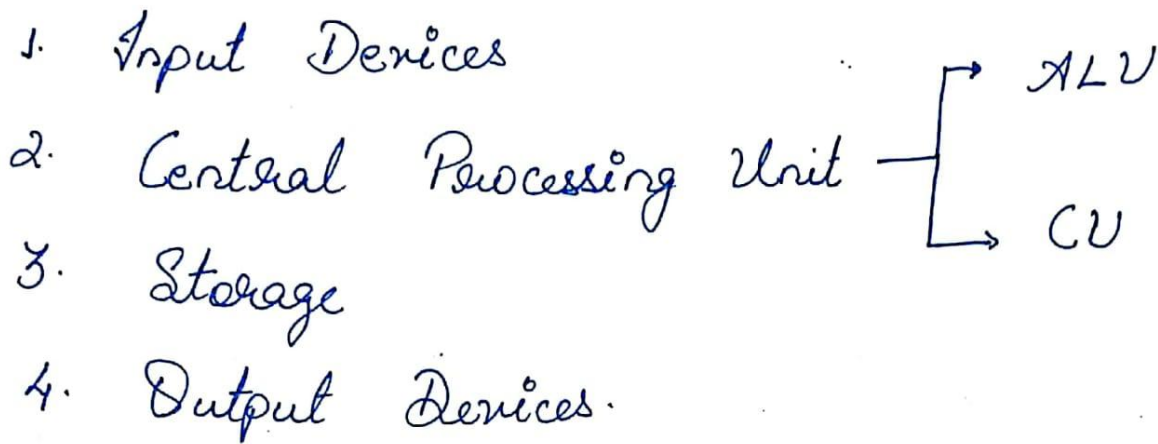 1. Input Devices
2. Central Processing Unit → ALU
→ CU
3. Storage
4. Output Devices.